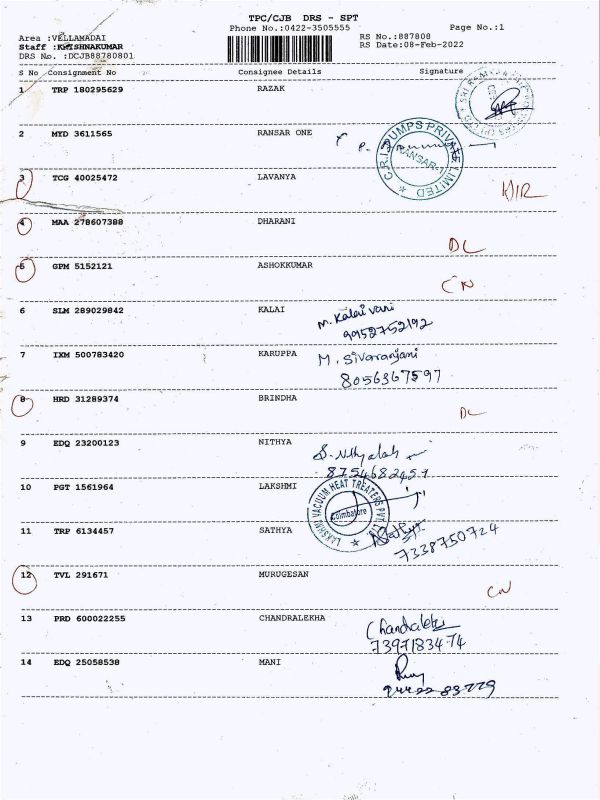 TPC/CJB DRS - SPT
Phone No.:0422-3505555 Page No.:1
Area :VELLAMADAI RS No.:887808
Staff :KRISHNAKUMAR RS Date:08-Feb-2022
DRS No. :DCJB88780801
S No Consignment No Consignee Details Signature
1 TRP 180295629 RAZAK
2 MYD 3611565 RANSAR ONE
C.R.I. PUMPS PRIVATE LIMITED
RANSAR-1
3 TCG 40025472 LAVANYA
4 MAA 278607388 DHARANI
DL
5 GPM 5152121 ASHOKKUMAR
CN
6 SLM 289029842 KALAI M. Kalaivani
9952752192
7 IXM 500783420 KARUPPA M. Sivaranjani
8056367597
8 HRD 31289374 BRINDHA
DL
9 EDQ 23200123 NITHYA
8754682457
10 PGT 1561964 LAKSHMI
LAKSHMI VACUUM HEAT TREATERS PVT. LTD.
Coimbatore
11 TRP 6134457 SATHYA
7338750724
12 TVL 291671 MURUGESAN
CN
13 PRD 600022255 CHANDRALEKHA Chandralekha
7397183474
14 EDQ 25058538 MANI